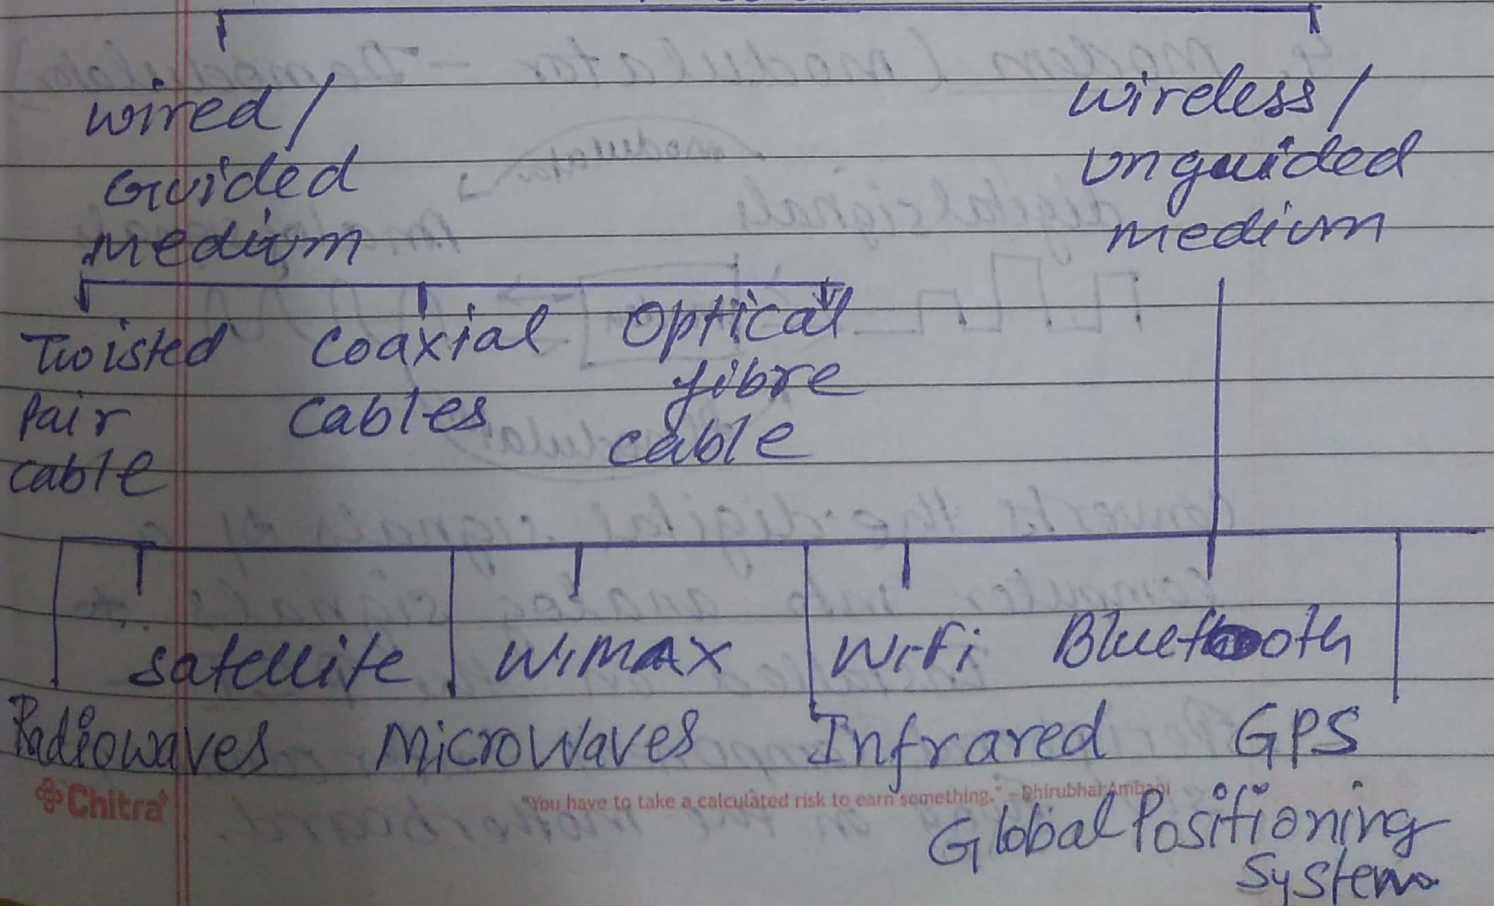 Wired/
Guided
Medium
Wireless/
Unguided
Medium
Twisted
Pair
cable
Coaxial
Cables
Optical
fibre
cable
Satellite
WiMAX
WiFi
Bluetooth
Radiowaves
MicroWaves
Infrared
GPS
Chitra
"You have to take a calculated risk to earn something." – Dhirubhai Ambani
Global Positioning
System